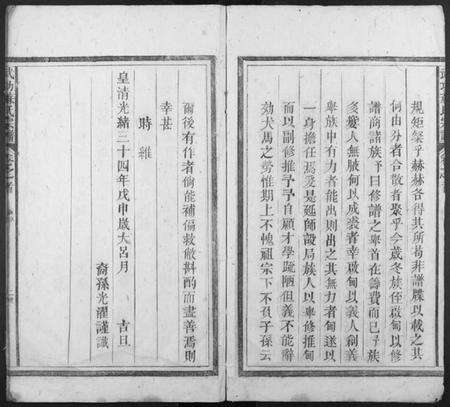 規矩幾乎赫赫各得其所苟非譜牒以載之其
何由分者合散者聚乎今歲冬族侄啟甸以修
譜商諸族予曰修譜之舉首在籌費而已予族
多愛人無腋何以成裘者幸啟甸以義人剏義
舉族中有力者能出則出之其無力者甸遂以
一身擔任焉爰是延師設局族人以舉修推甸
而以副修推予予自顧才學疏陋但義不能辭
効犬馬之勞惟期上不愧祖宗下不負子孫云
爾後有作者倘能補偏救敝斟酌而盡善焉則
幸甚
時維
皇清光緒三十四年戊申歲大呂月 吉旦
裔孫光 謹識